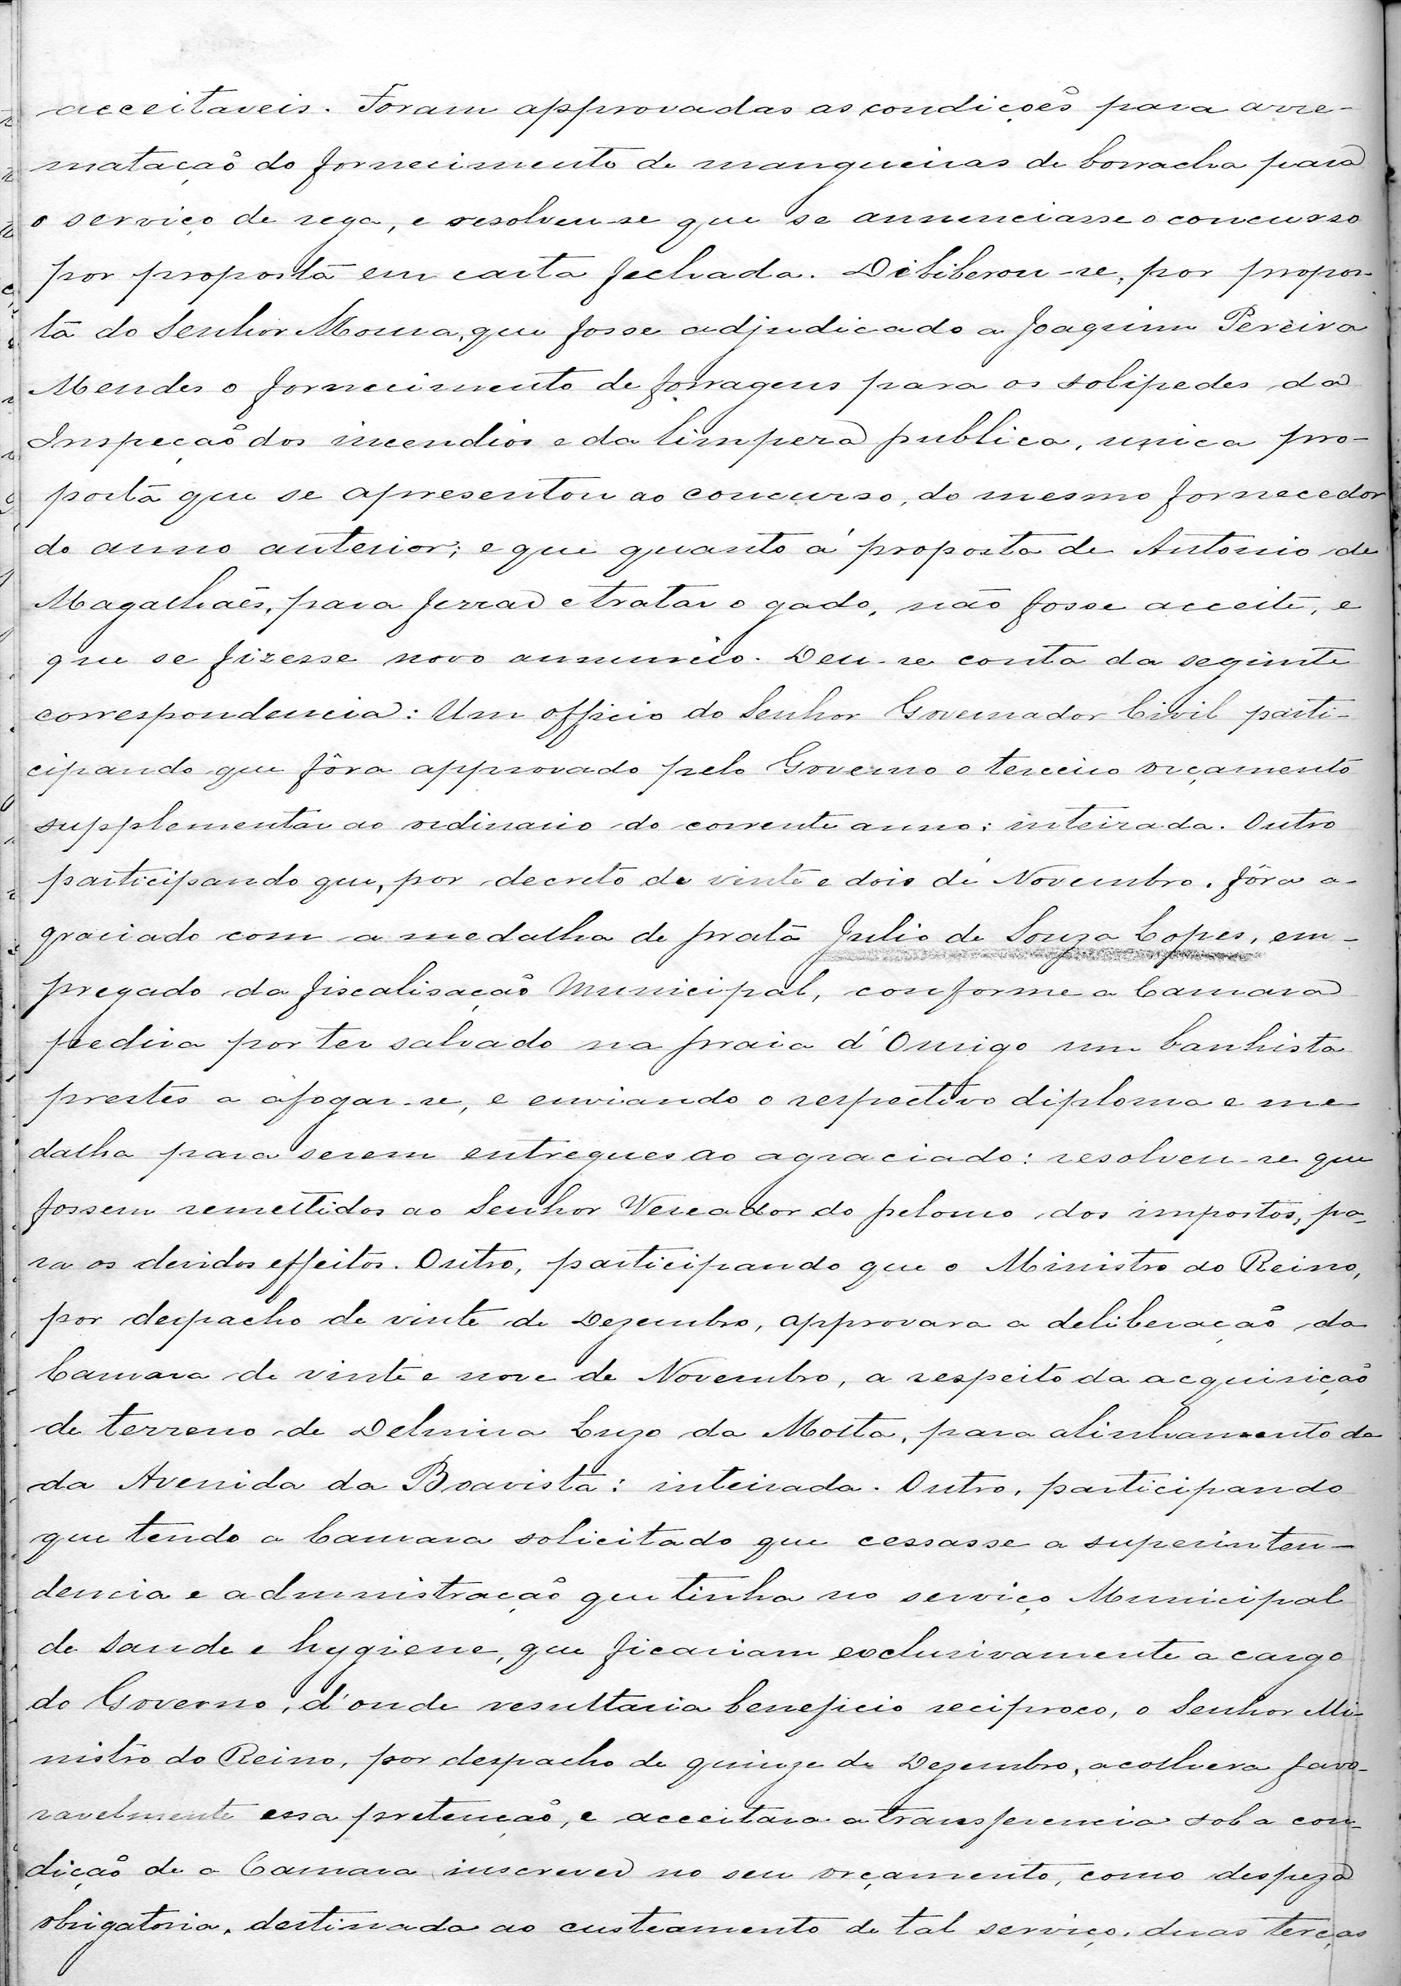 acceitaveis. Foram approvadas as condições para arre-
matação do fornecimento de mangueiras de borracha para
o serviço de rega, e resolveu-se que se annunciasse o concurso
por proposta em carta fechada. Diliberou-se, por propos-
ta do Senhor Moura, que fosse adjudicado a Joaquim Pereira
Mendes o fornecimento de forragens para os solipedes da
Inspeção dos incendios e da limpeza publica, unica pro-
posta que se apresentou ao concurso, do mesmo fornecedor
do anno anterior; e que quanto á proposta de Antonio de
Magalhaẽs, para ferrar e tratar o gado, não fosse acceite, e
que se fizesse novo annuncio. Deu-se conta da seginte
correspondencia: Um officio do Senhor Governador Civil parti-
cipando que fôra approvado pelo Governo o terceiro orçamento
supplementar ao ordinario do corrente anno: inteirada. Outro
participando que, por decreto de vinte e dois de Novembro, fôra a-
graciado com a medalha de prata Julio de Souza Lopes, em-
pregado da fiscalisação Municipal, conforme a Camara
pedira por ter salvado na praia d'Ourigo um banhista
prestes a afogar-se, e enviando o respectivo diploma e me-
dalha para serem entregues ao agraciado: resolveu-se que
fossem remettidos ao Senhor Vereador do pelouro dos impostos, pa-
ra os devidos effeitos. Outro, participando que o Ministro do Reino,
por despacho de vinte de Dezembro, approvara a deliberação da
Camara de vinte e nove de Novembro, a respeito da acquisição
de terreno de Delmira Luzo da Motta, para alinhamento da
da Avenida da Boavista: inteirada. Outro, participando
que tendo a Camara solicitado que cessasse a superinten-
dencia e administração que tinha no serviço Municipal
de saude e hygiene, que ficariam exclusivamente a cargo
do Governo, d'onde resultaria beneficio reciproco, o Senhor Mi-
nistro do Reino, por despacho de quinze de Dezembro, acolhera favo-
ravelmente essa pretenção, e acceitara a transferencia sob a con-
dição de a Camara inscrever no seu orçamento, como despeza
obrigatoria, destinada ao custeamento de tal serviço, duas terças